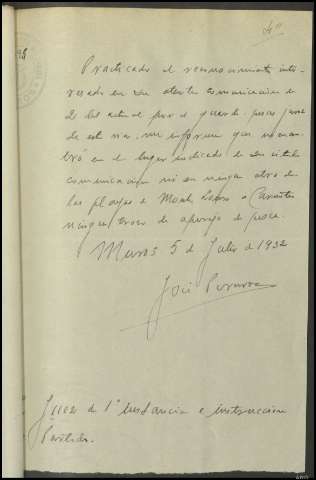 Practicado el reconocimiento inte-
resado en su atenta comunicacion de
2 del actual por el guarda pesca jurado
de este mar, me informa que no encon-
tró en el lugar indicado de su citada
comunicacion ni en ningun otro de
las playas de Monte Louro a Carnota
ningun trozo de aparejo de pesca.
Muros 5 de Julio de 1932
José
Juez de 1ª Instancia e instruccion
Partido.